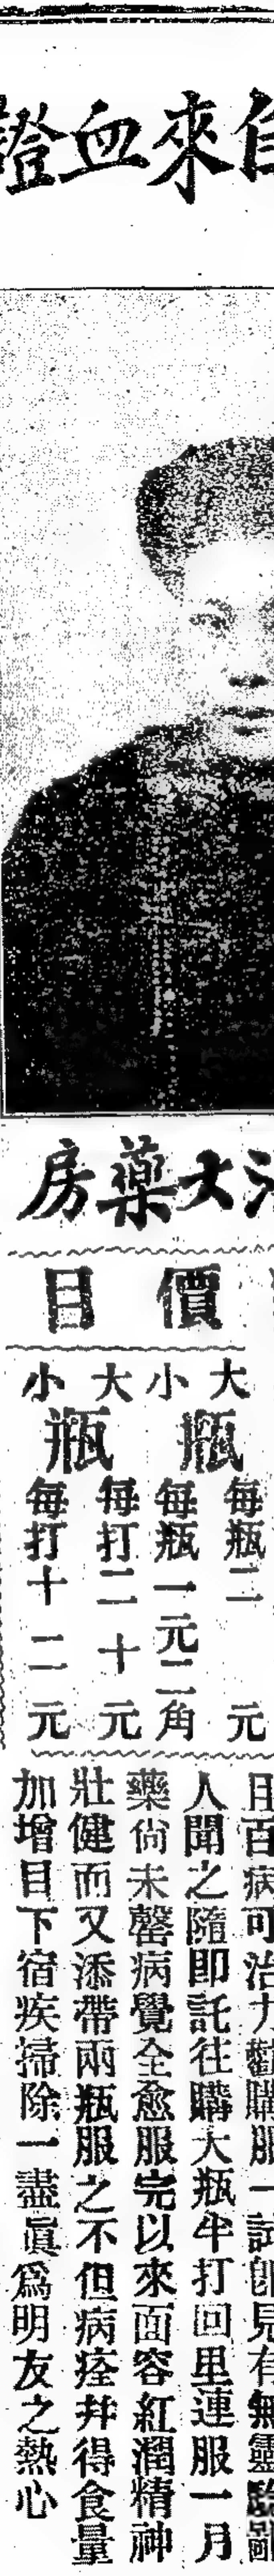 自來血證
大藥房
價目
大瓶 每瓶二元
小瓶 每瓶一元二角
大瓶 每打二十元
小瓶 每打十二元
百病可治力勸購服一試卽見有無靈
人聞之隨卽託往購大瓶半打回里連服一月
藥尙未罄病覺全愈服完以來面容紅潤精神
壯健而又添帶兩瓶服之不但病痊幷得食量
加增目下宿疾掃除一盡眞爲明友之熱心